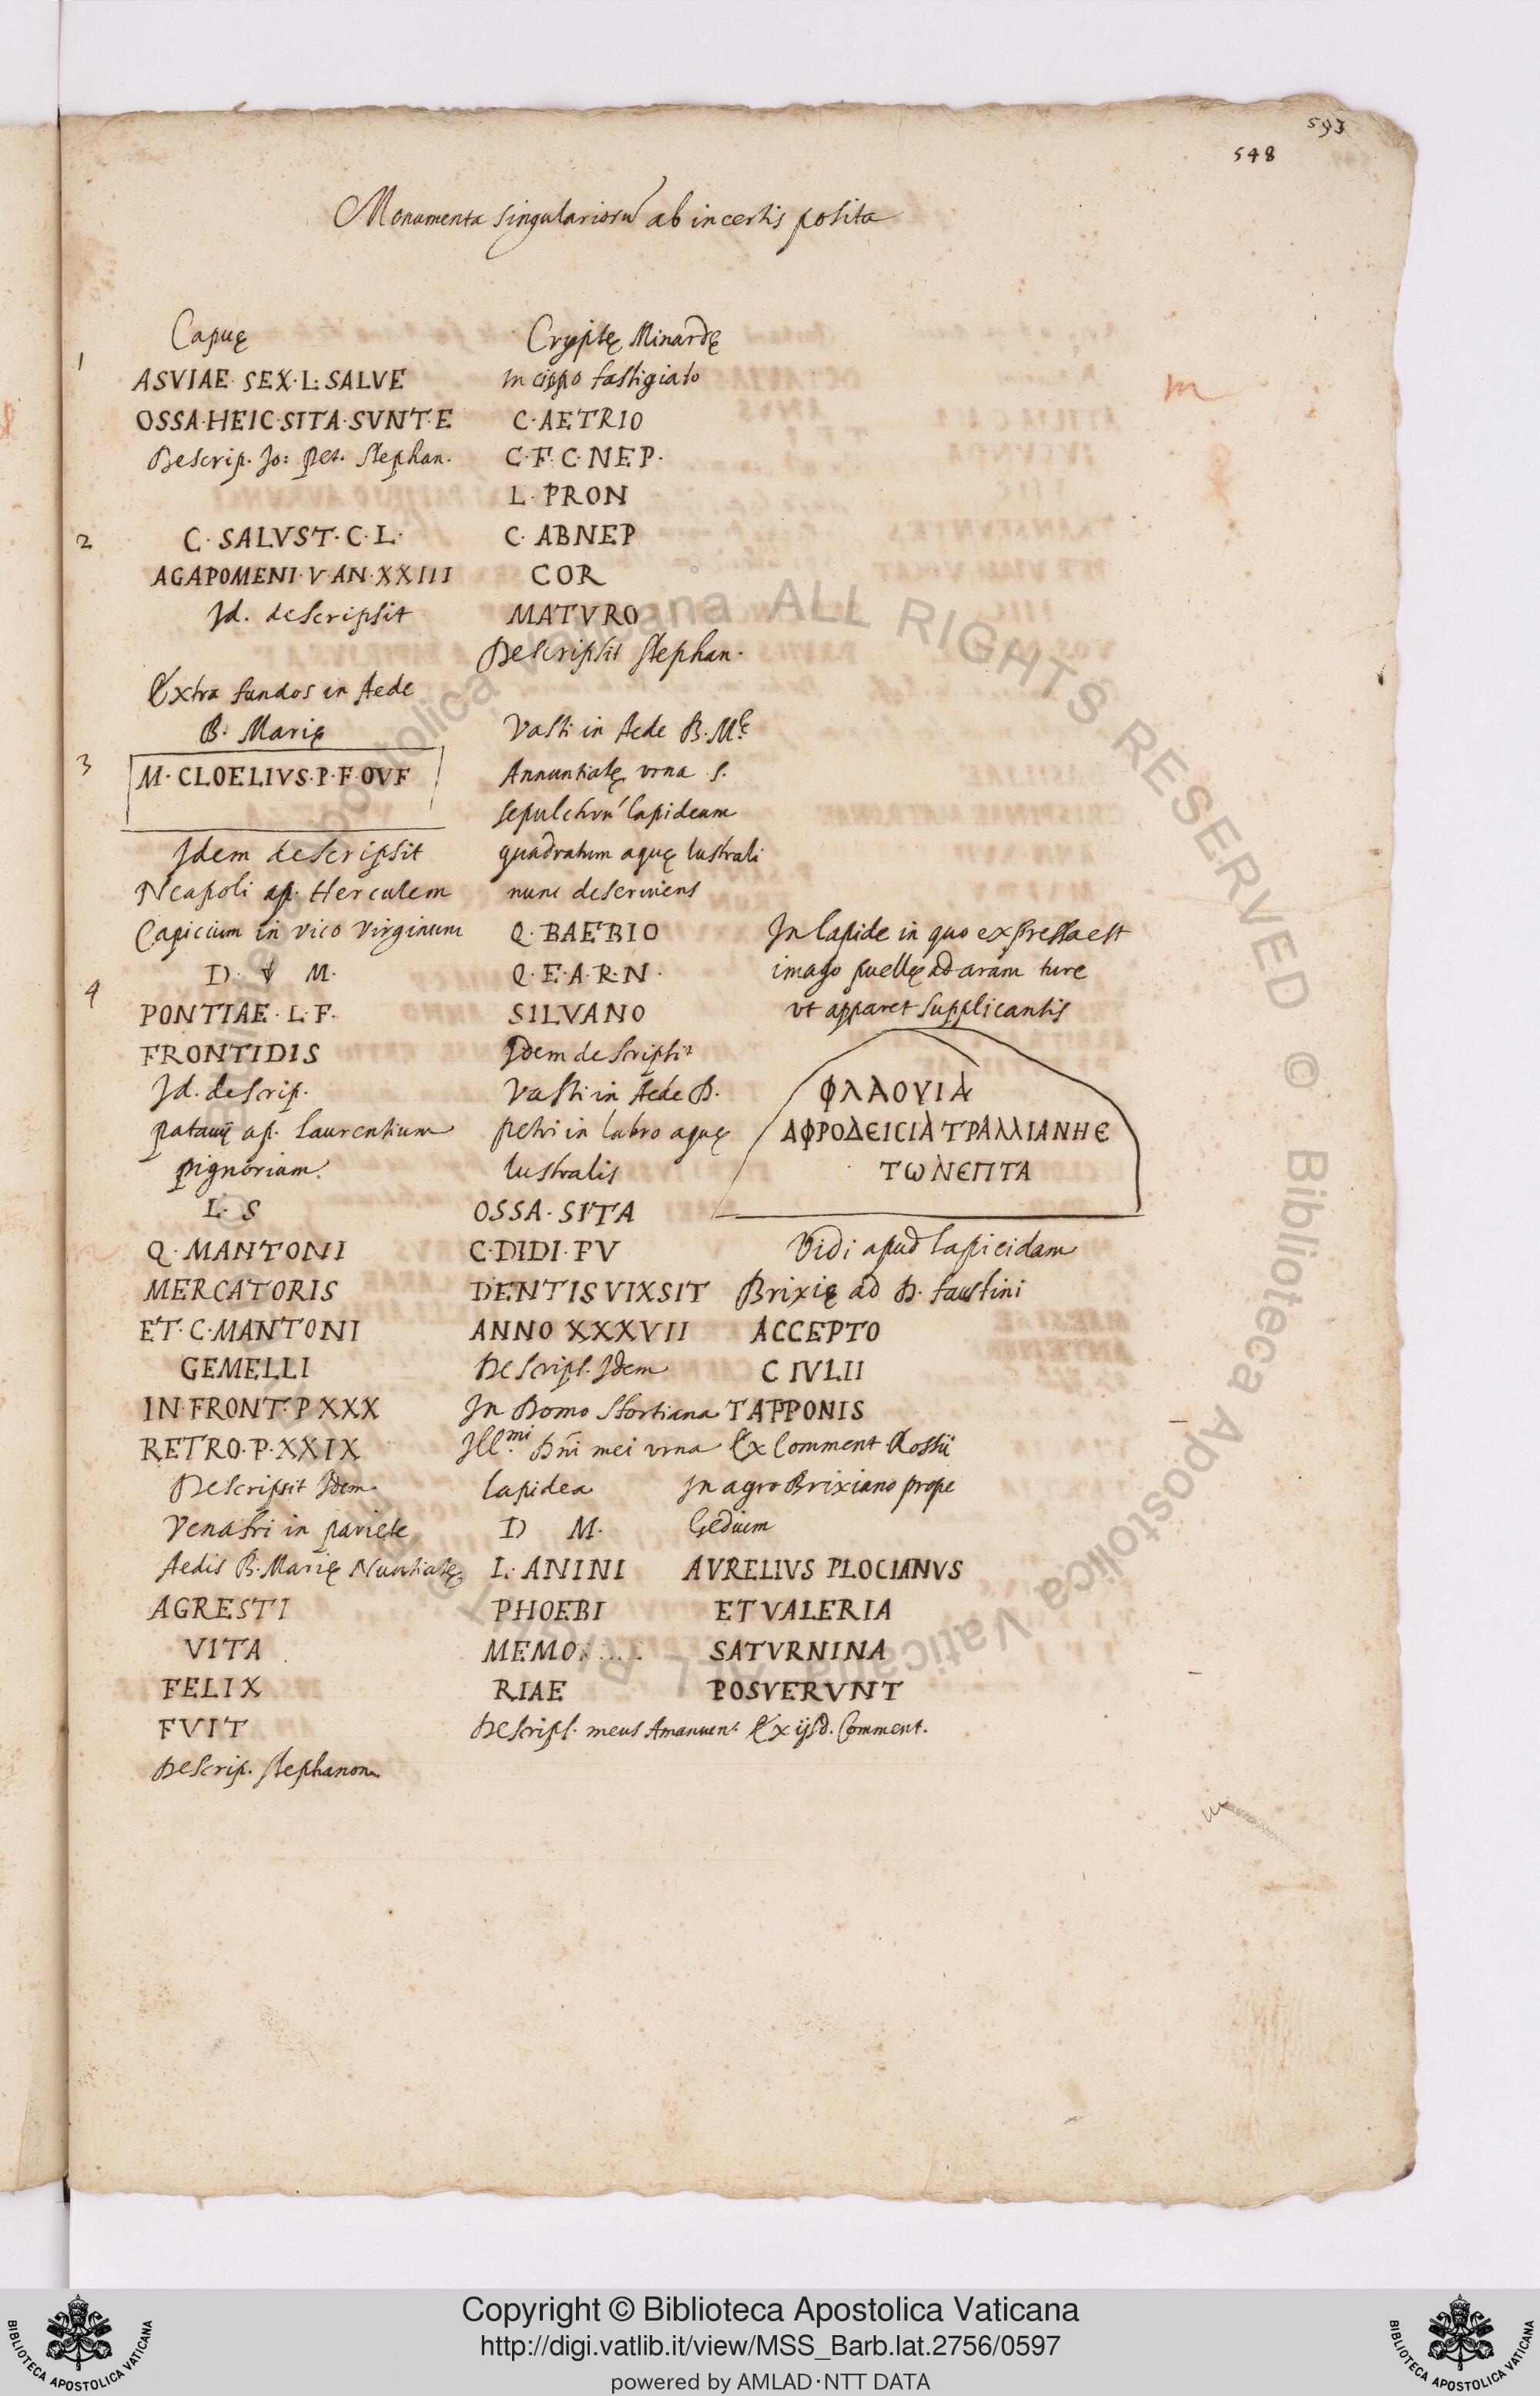 593
548
Monumenta singulariorũ ab incertis posita
Capuę
1
ASVIAE SEX·L·SALVE
OSSA·HEIC·SITA·SVNT·E
Descrip. Jo: Pet. Stephan.
2
C· SALVST·C·L·
AGAPOMENI·V·AN·XXIII
Jd. descripsit
Extra fundos in Aede
B. Marię
3
M·CLOELIVS·P·F·OVF
Jdem descripsit
Neapoli ap. Herculem
Capicium in vico Virginum
4
D. M.
PONTIAE·L·F·
FRONTIDIS
Jd. descrip.
Patavij ap. Laurentium
pignorium.
L· S
Q·MANTONI
MERCATORIS
ET·C·MANTONI
GEMELLI
IN·FRONT·P XXX
RETRO·P·XXIX
Descripsit Jdem
Venafri in pariete
Aedis B. Marię Nuntiatę
AGRESTI
VITA
FELIX
FVIT
Descrip. Stephanon.
Cryptę Minardę
in cippo fastigiato
C·AETRIO
C·F·C·NEP·
L·PRON
C·ABNEP
COR
MATVRO
Descripsit Stephan.
Vasti in Aede B. M.ę
Annuntiatę vrna s.
sepulchrũ lapideum
quadratum aquę lustrali
nunc deserviens
Q·BAEBIO
Q·E·A·R·N·
SILVANO
Jdem descripsit
Vasti in Aede D.
petri in labro aquę
lustralis
OSSA·SITA
C·DIDI·FV
DENTIS VIXSIT
ANNO XXXVII
Descrips. Jdem
Jn Domo Sfortiana
Jll.mi Dñi mei vrna
lapidea
D M.
L·ANINI
PHOEBI
MEMO.....
RIAE
Descrips. meus Amanuens.
Jn lapide in quo expressa est
imago puellę ad aram ture
vt apparet supplicantis
ΦΛΑΟΥΙΑ
ΑΦΡΟΔΕΙCΙΑ ΤΡΑΛΛΙΑΝΗ Ε
ΤωΝ ΕΠΤΑ
Vidi apud lapicidam
Brixię ad D. faustini
ACCEPTO
C IVLII
TAPPONIS
Ex Comment Rossii
Jn agro Brixiano prope
Gedium
AVRELIVS PLOCIANVS
ET VALERIA
SATVRNINA
POSVERVNT
Ex ijsd. Comment.
© Biblioteca Apostolica Vaticana ALL RIGHTS RESERVED
Copyright © Biblioteca Apostolica Vaticana
http://digi.vatlib.it/view/MSS_Barb.lat.2756/0597
powered by AMLAD·NTT DATA
BIBLIOTECA APOSTOLICA VATICANA
BIBLIOTECA APOSTOLICA VATICANA